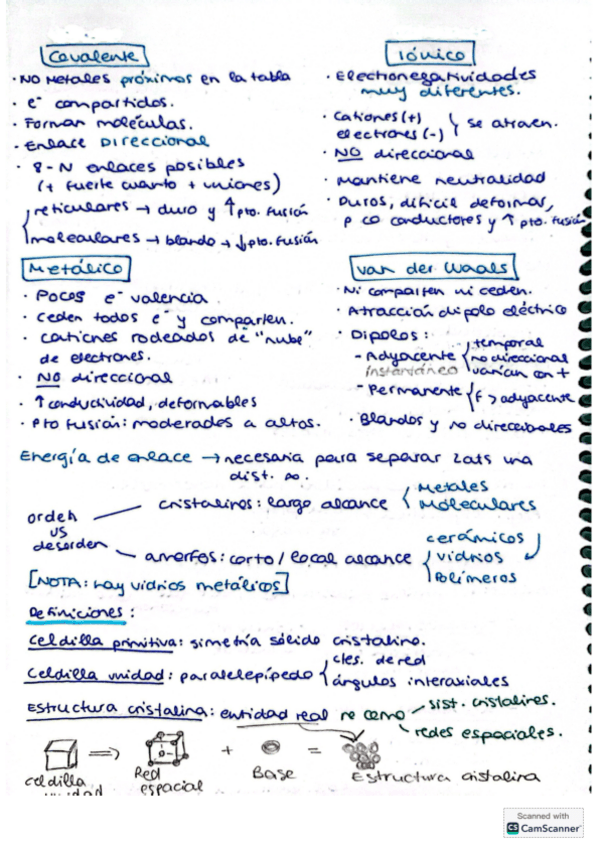 Covalente
· NO Metales próximos en la tabla
· e⁻ compartidos.
· Forman moléculas.
· Enlace Direccional
· 8-N enlaces posibles
(+ fuerte cuanto + uniones)
reticulares → duro y ↑ pto. fusión
moleculares → blando → ↓ pto. fusión
Iónico
· Electronegatividades
muy diferentes.
· Cationes (+)
electrones (-) } se atraen.
· NO direccional
· Mantiene neutralidad
· Duros, difícil deformar,
poco conductores y ↑ pto. fusión
Metálico
· Pocos e⁻ valencia.
· Ceden todos e⁻ y comparten.
· Cationes rodeados de "nube"
de electrones.
· NO direccional
· ↑ conductividad, deformables
· Pto fusión: moderados a altos.
Van der Waals
· Ni comparten ni ceden.
· Atracción dipolo eléctrico
· Dipolos:
- Adyacente { temporal
instantáneo no direccional
varían con t
- Permanente { F > adyacente
· Blandos y no direccionales
Energía de enlace → necesaria para separar 2 ats una
dist. ∞.
orden
vs
desorden
cristalinos: largo alcance { Metales
Moleculares
amorfos: corto / local alcance { cerámicos
vidrios
Polímeros
[NOTA: hay vidrios metálicos]
Definiciones:
Celdilla primitiva: simetría sólido cristalino.
Celdilla unidad: paralelepípedo { ctes. de red
ángulos interaxiales
Estructura cristalina: entidad real
sist. cristalinos.
redes espaciales.
⇒ + =
celdilla
unidad
Red
espacial
Base
Estructura cristalina
Scanned with
CS CamScanner